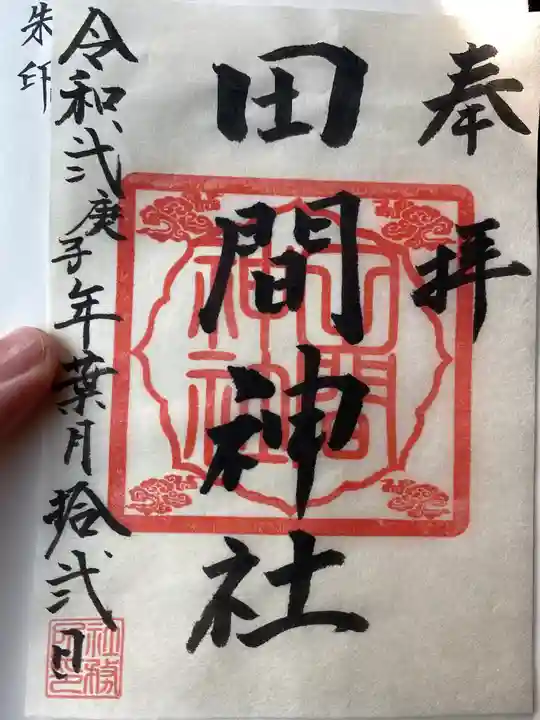 奉拝
田間神社
令和弐庚子年葉月拾弐日
朱印
田間
神社